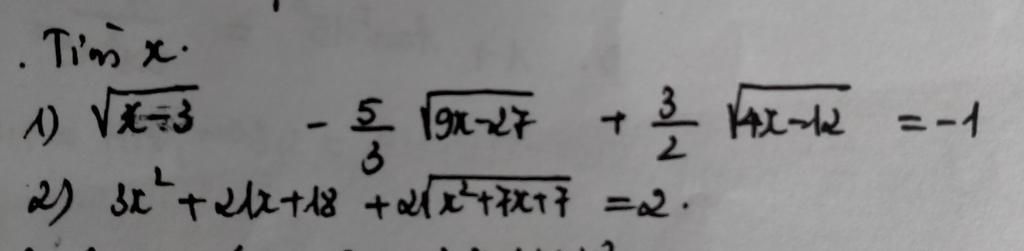 . Tìm x.
1) √(x-3) - 5/3 √(9x-27) + 3/2 √(4x-12) = -1
2) 3x² + 21x + 18 + 2√(x²+7x+7) = 2.